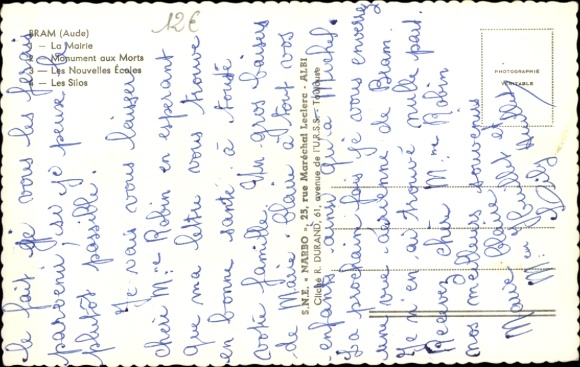 BRAM (Aude)
— La Mairie
— Monument aux Morts
— Les Nouvelles Écoles
— Les Silos
12€
PHOTOGRAPHIE
VÉRITABLE
S.N.E. « NARBO », 25, rue Maréchal Leclerc - ALBI
Cliché R. DURAND, 61, avenue de l'U.R.S.S. - Toulouse
le fait je vous les ferais
parvenir (si je peux) le
plutot possible.
Je vais vous laisser
chère Mme Robin en esperant
que ma lettre vous trouve
en bonne santé à toute
votre famille. Un gros baisers
de Marie-Claire à tout vos
enfants ainsi qu'à Michel.
La prochaine fois je vous enverrez
une vue aérienne de Bram.
Je n'en ai trouvé nulle part.
Recevez chère Mme Robin
nos meilleurs souvenirs
Marie Claire et
M. et